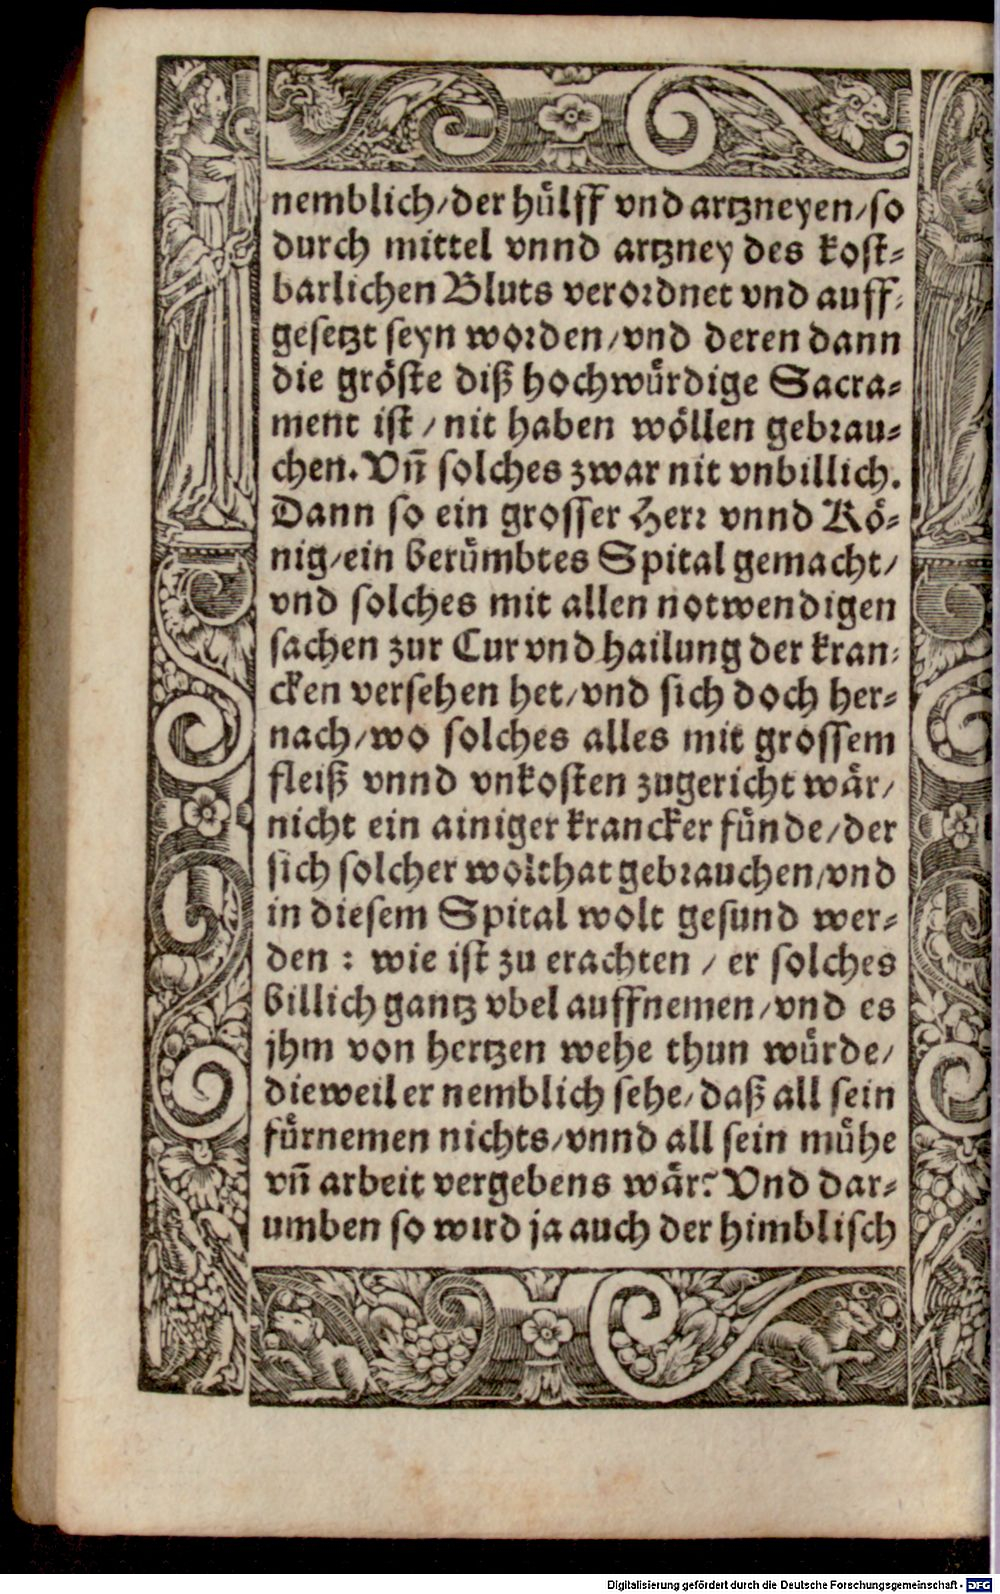 nemblich/der hülff vnd artzneyen/so
durch mittel vnnd artzney des kost⸗
barlichen Bluts verordnet vnd auff⸗
gesetzt seyn worden/vnd deren dann
die gröste diß hochwürdige Sacra⸗
ment ist / nit haben wöllen gebrau⸗
chen. Vñ solches zwar nit vnbillich.
Dann so ein grosser Herr vnnd Kö⸗
nig/ein berümbtes Spital gemacht/
vnd solches mit allen notwendigen
sachen zur Cur vnd hailung der kran⸗
cken versehen het/vnd sich doch her⸗
nach/wo solches alles mit grossem
fleiß vnnd vnkosten zugericht wär/
nicht ein ainiger krancker fünde/der
sich solcher wolthat gebrauchen/vnd
in diesem Spital wolt gesund wer⸗
den : wie ist zu erachten / er solches
billich gantz vbel auffnemen/vnd es
jhm von hertzen wehe thun würde/
dieweil er nemblich sehe/daß all sein
fürnemen nichts/vnnd all sein mühe
vñ arbeit vergebens wär? Vnd dar⸗
umben so wird ja auch der himblisch
Digitalisierung gefördert durch die Deutsche Forschungsgemeinschaft - DFG